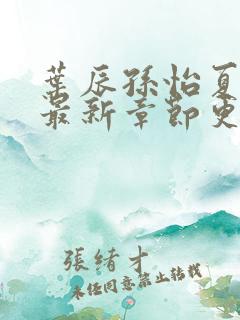 葉辰孫怡夏
最新章節更
張緒才
未经同意禁止转载